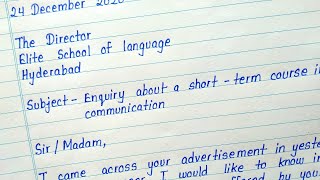 24 December 2020
The Director
Elite School of language
Hyderabad
Subject - Enquiry about a short - term course
communication
Sir / Madam,
I came across your advertisement in
I would like to know
by you